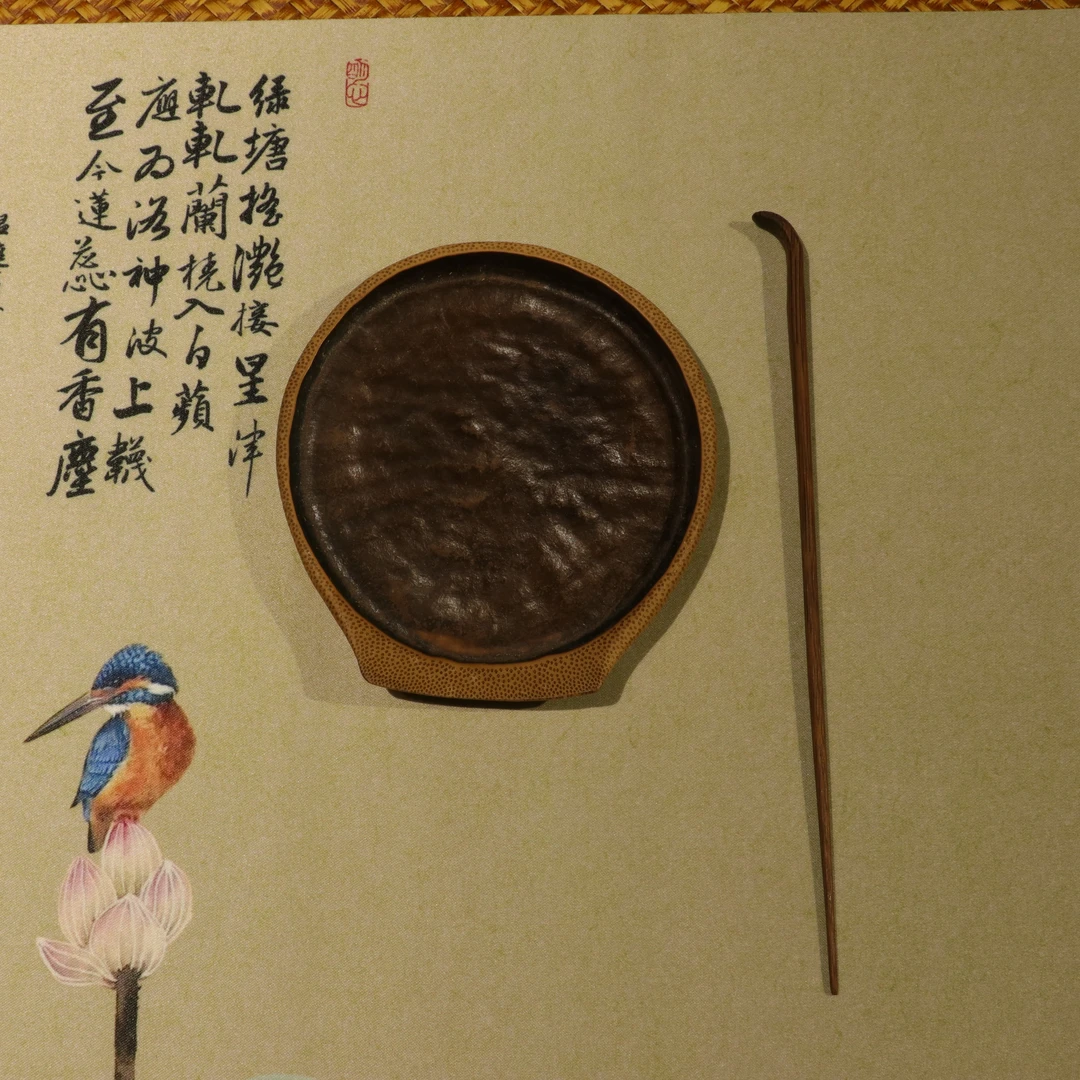 绿塘搖灔接星津
軋軋蘭橈入白蘋
應为洛神波上韈
至今蓮蕊有香塵